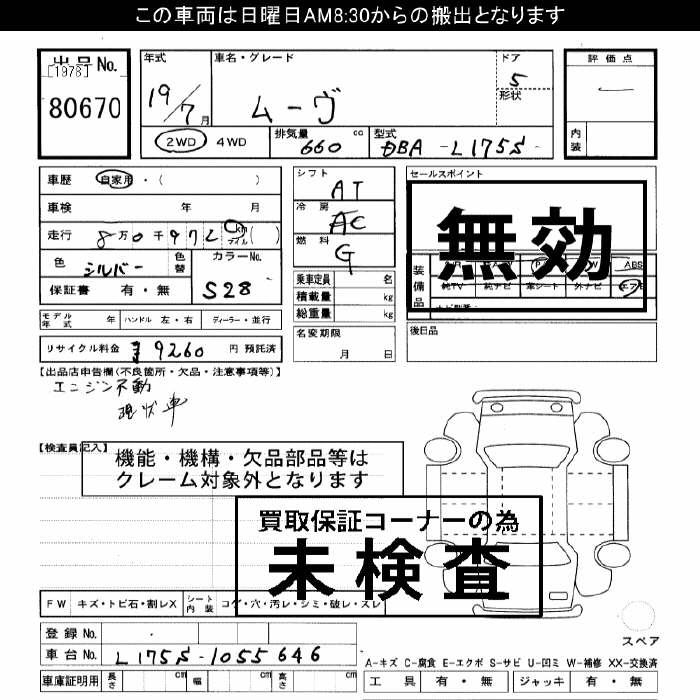 この車両は日曜日AM8:30からの搬出となります
出品No.
[1978]
80670
年式
19/7月
車名・グレード
ムーヴ
ドア
5
形状
評価点
内装
2WD 4WD
排気量
660 cc
型式
DBA-L175S-
車歴 自家用・( )
車検 年 月
走行 8万0千972 km マイル ( )
色 シルバー 色替
カラーNo.
S28
保証書 有・無
モデル年式 年 ハンドル 左・右 ディーラー・並行
リサイクル料金 ¥9260 円 預託済
シフト
AT
冷房
AC
燃料
G
乗車定員 名
積載量 kg
総重量 kg
名変期限
月 日
セールスポイント
無効
装備品
ABS
純TV 純ナビ 革シート 外ナビ エアB
後日品
【出品店申告欄(不良箇所・欠品・注意事項等)】
エンジン不動
現状車
【検査員記入】
機能・機構・欠品部品等は
クレーム対象外となります
買取保証コーナーの為
未検査
FW キズ・トビ石・割レX シート内装 コゲ・穴・汚レ・シミ・破レ・スレ
スペア
登録No.
車台No. L175S-1055646
車庫証明用 長さ cm 幅 cm 高さ cm
A-キズ C-腐食 E-エクボ S-サビ U-凹ミ W-補修 XX-交換済
工具 有・無 ジャッキ 有・無